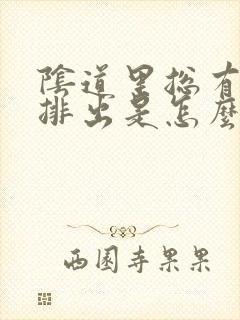 陰道里總有
排出是怎麼
西園寺果果